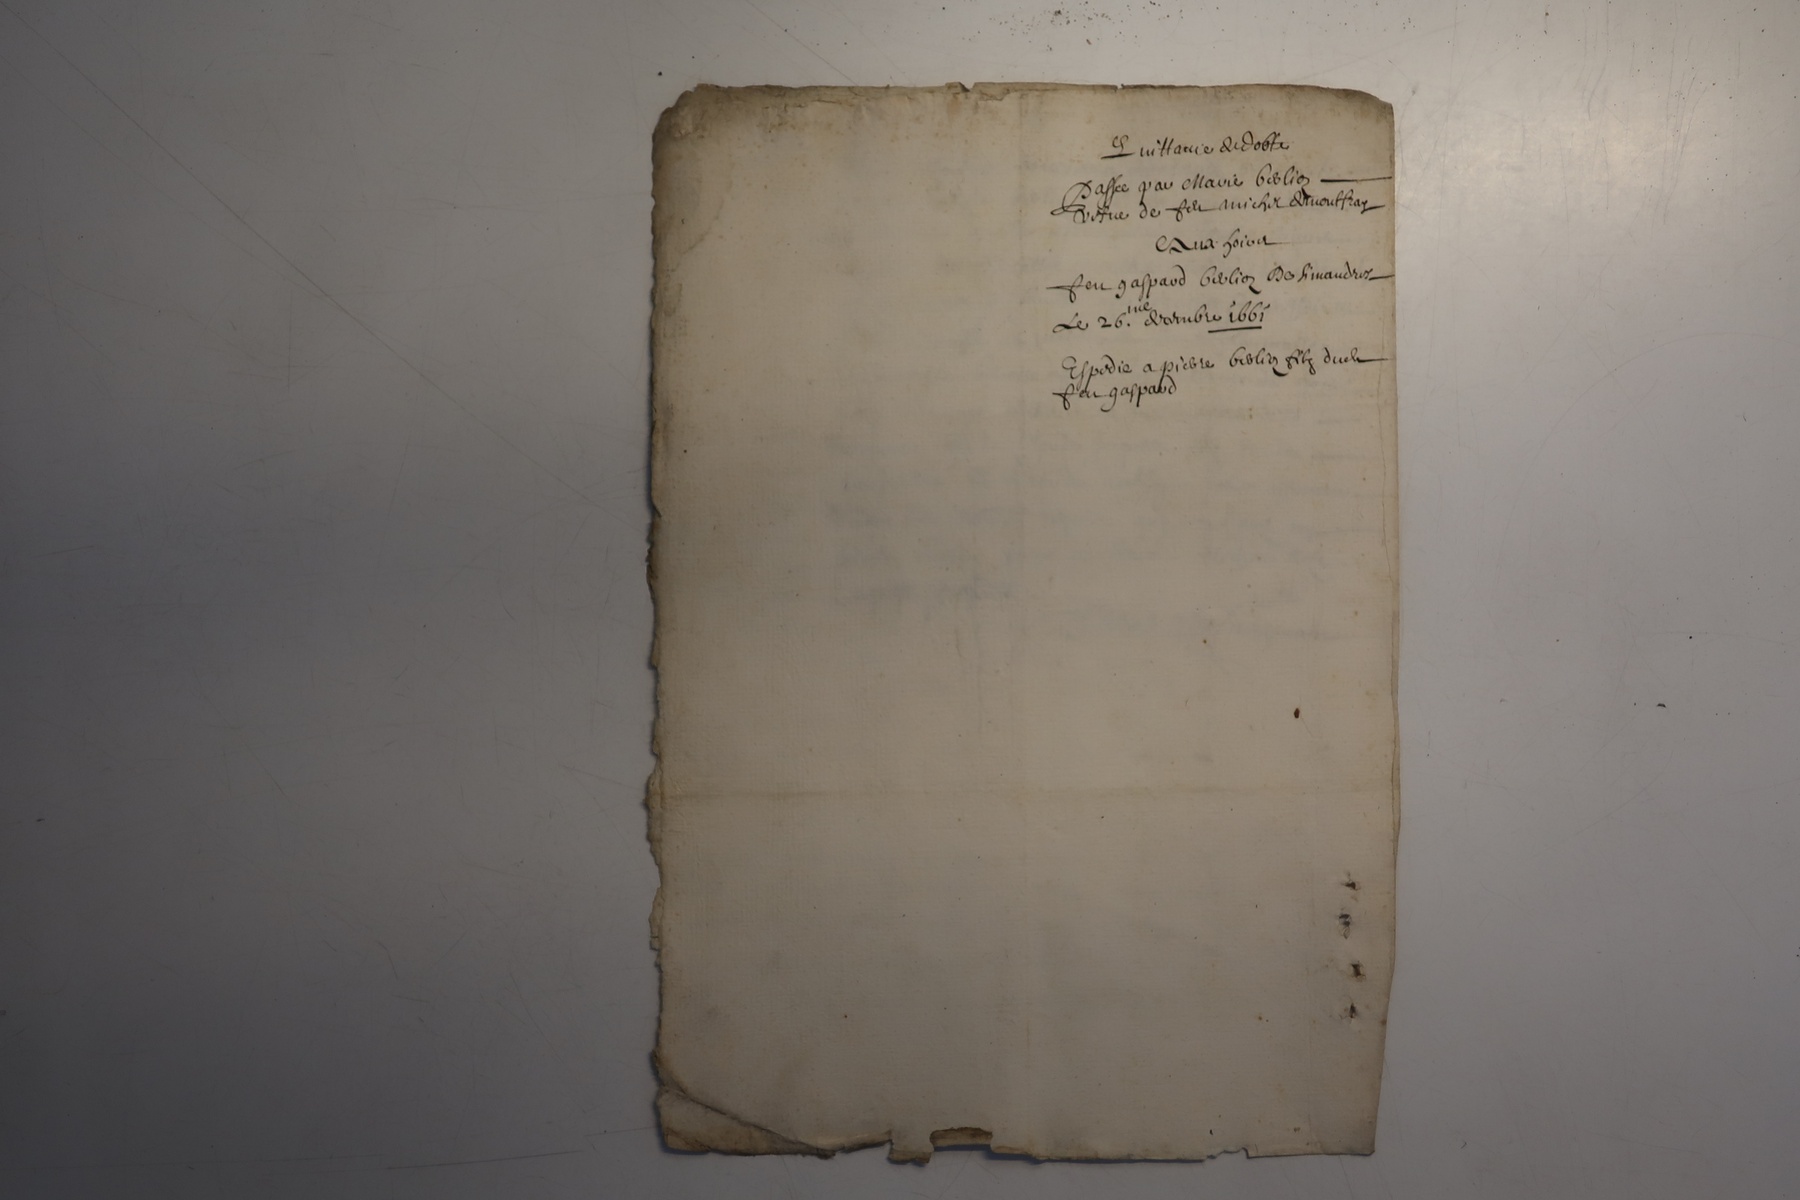 Quittance de dotte
Passee par Marie berlioz
vefve de feu michel demontfray
Aux hoirs
feu gaspard berlioz De Simandres
Le 26.me decembre 1661
Expedie a pierre berlioz filz dudt
feu gaspard